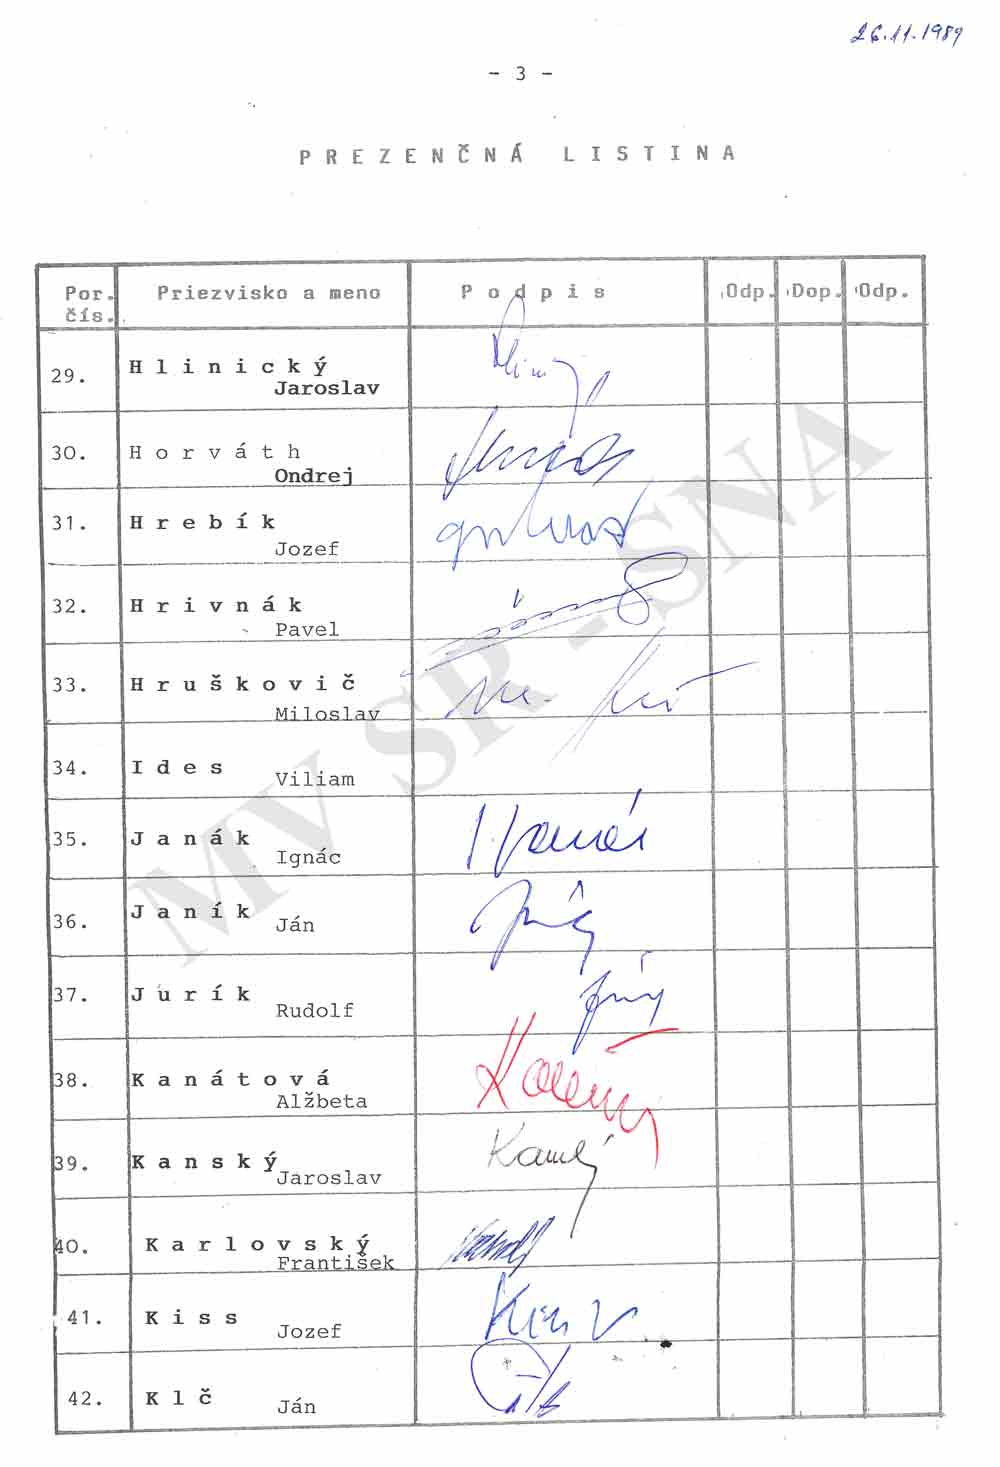 26.11.1989
- 3 -
PREZENČNÁ LISTINA
Por. čís. Priezvisko a meno Podpis Odp. Dop. Odp.
29. Hlinický
Jaroslav
30. Horváth
Ondrej
31. Hrebík
Jozef
32. Hrivnák
Pavel
33. Hruškovič
Miloslav
34. Ides
Viliam
35. Janák
Ignác
36. Janík
Ján
37. Jurík
Rudolf
38. Kanátová
Alžbeta
39. Kanský
Jaroslav
40. Karlovský
František
41. Kiss
Jozef
42. Klč
Ján
MV SR - SNA